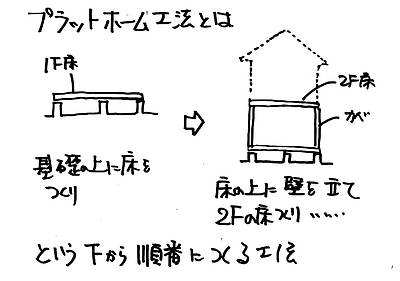 プラットホーム工法とは
1F床
2F床
カベ
基礎の上に床を
つくり
床の上に壁を立て
2Fの床つくり……
という下から順番につくる工法